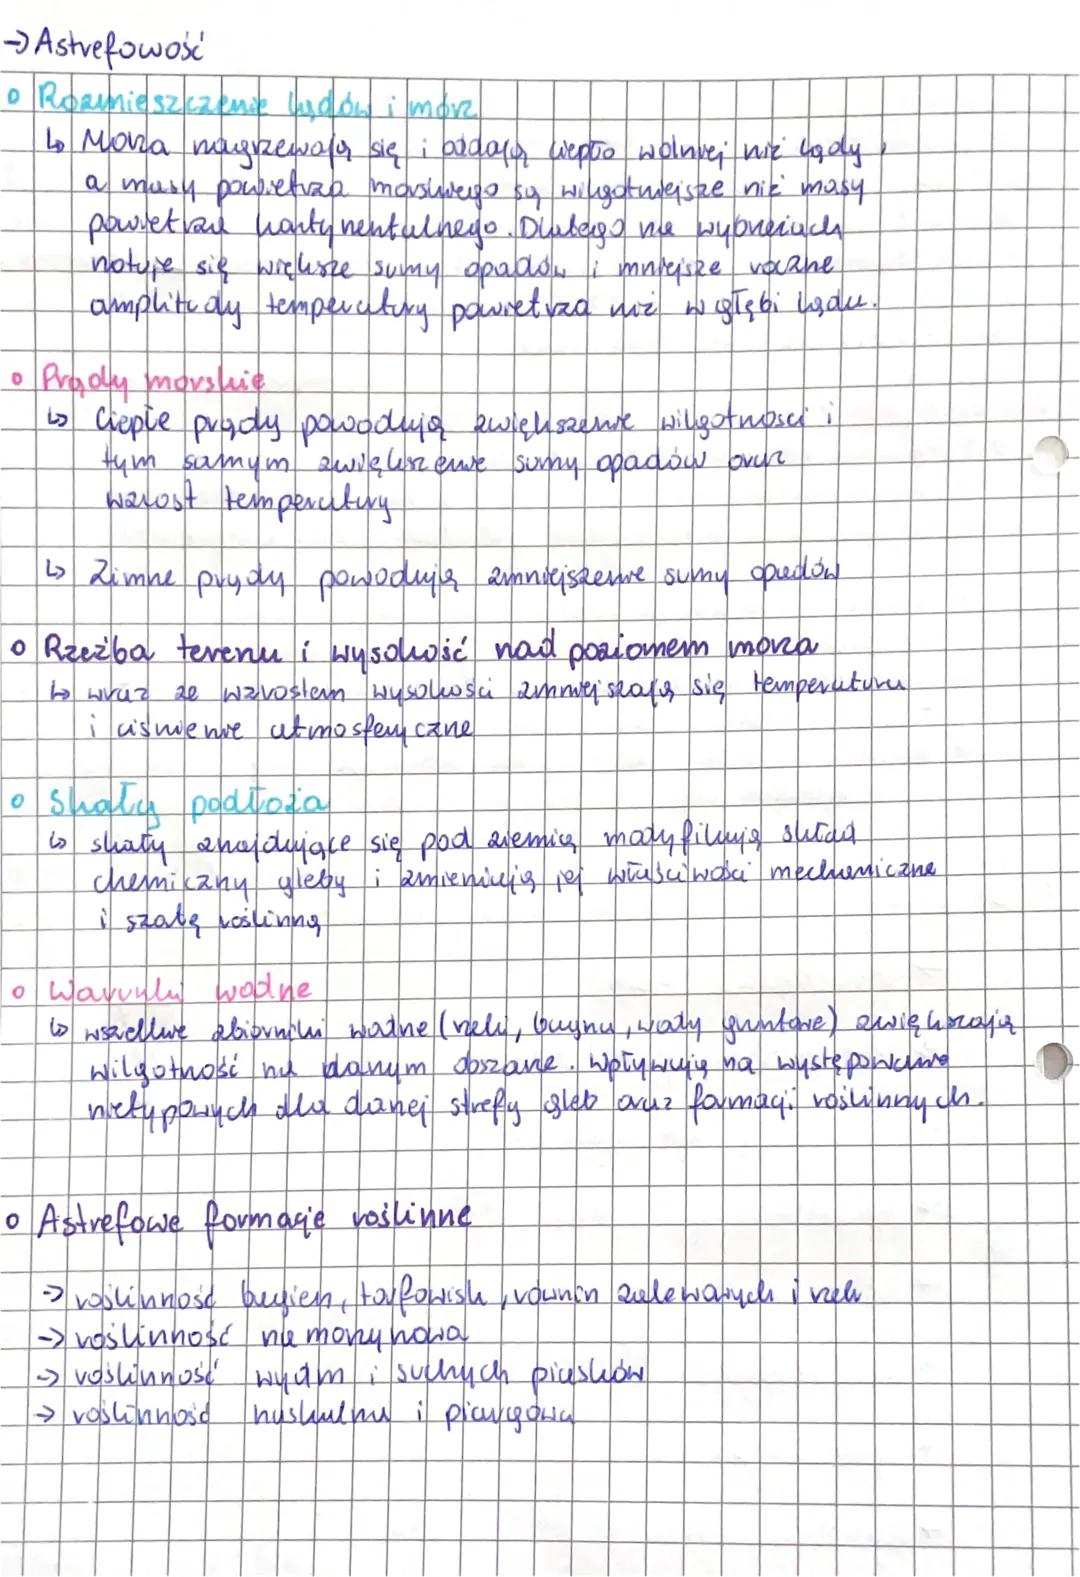 → Astrefowość
o Rozmieszczenie lądów i mórz
↳ Morza nagrzewają się i oddają ciepło wolniej niż lądy,
a masy powietrza morskiego są wilgotniejsze niż masy
powietrza kontynentalnego. Dlatego na wybrzeżach
notuje się większe sumy opadów i mniejsze roczne
amplitudy temperatury powietrza niż w głębi lądu.
o Prądy morskie
↳ Ciepłe prądy powodują zwiększenie wilgotności i
tym samym zwiększenie sumy opadów oraz
wzrost temperatury
↳ Zimne prądy powodują zmniejszenie sumy opadów
o Rzeźba terenu i wysokość nad poziomem morza
↳ wraz ze wzrostem wysokości zmniejszają się temperatura
i ciśnienie atmosferyczne
o Skały podłoża
↳ skały znajdujące się pod ziemią modyfikują skład
chemiczny gleby i zmieniają jej właściwości mechaniczne
i szatę roślinną
o Warunki wodne
↳ wszelkie zbiorniki wodne (rzeki, bagna, wody gruntowe) zwiększają
wilgotność na danym obszarze. Wpływają na występowanie
nietypowych dla danej strefy gleb oraz formacji roślinnych.
o Astrefowe formacje roślinne
→ roślinność bagien, torfowisk, równin zalewanych i rzek
→ roślinność namorzynowa
→ roślinność wydm i suchych piasków
→ roślinność naskalna i piargowa